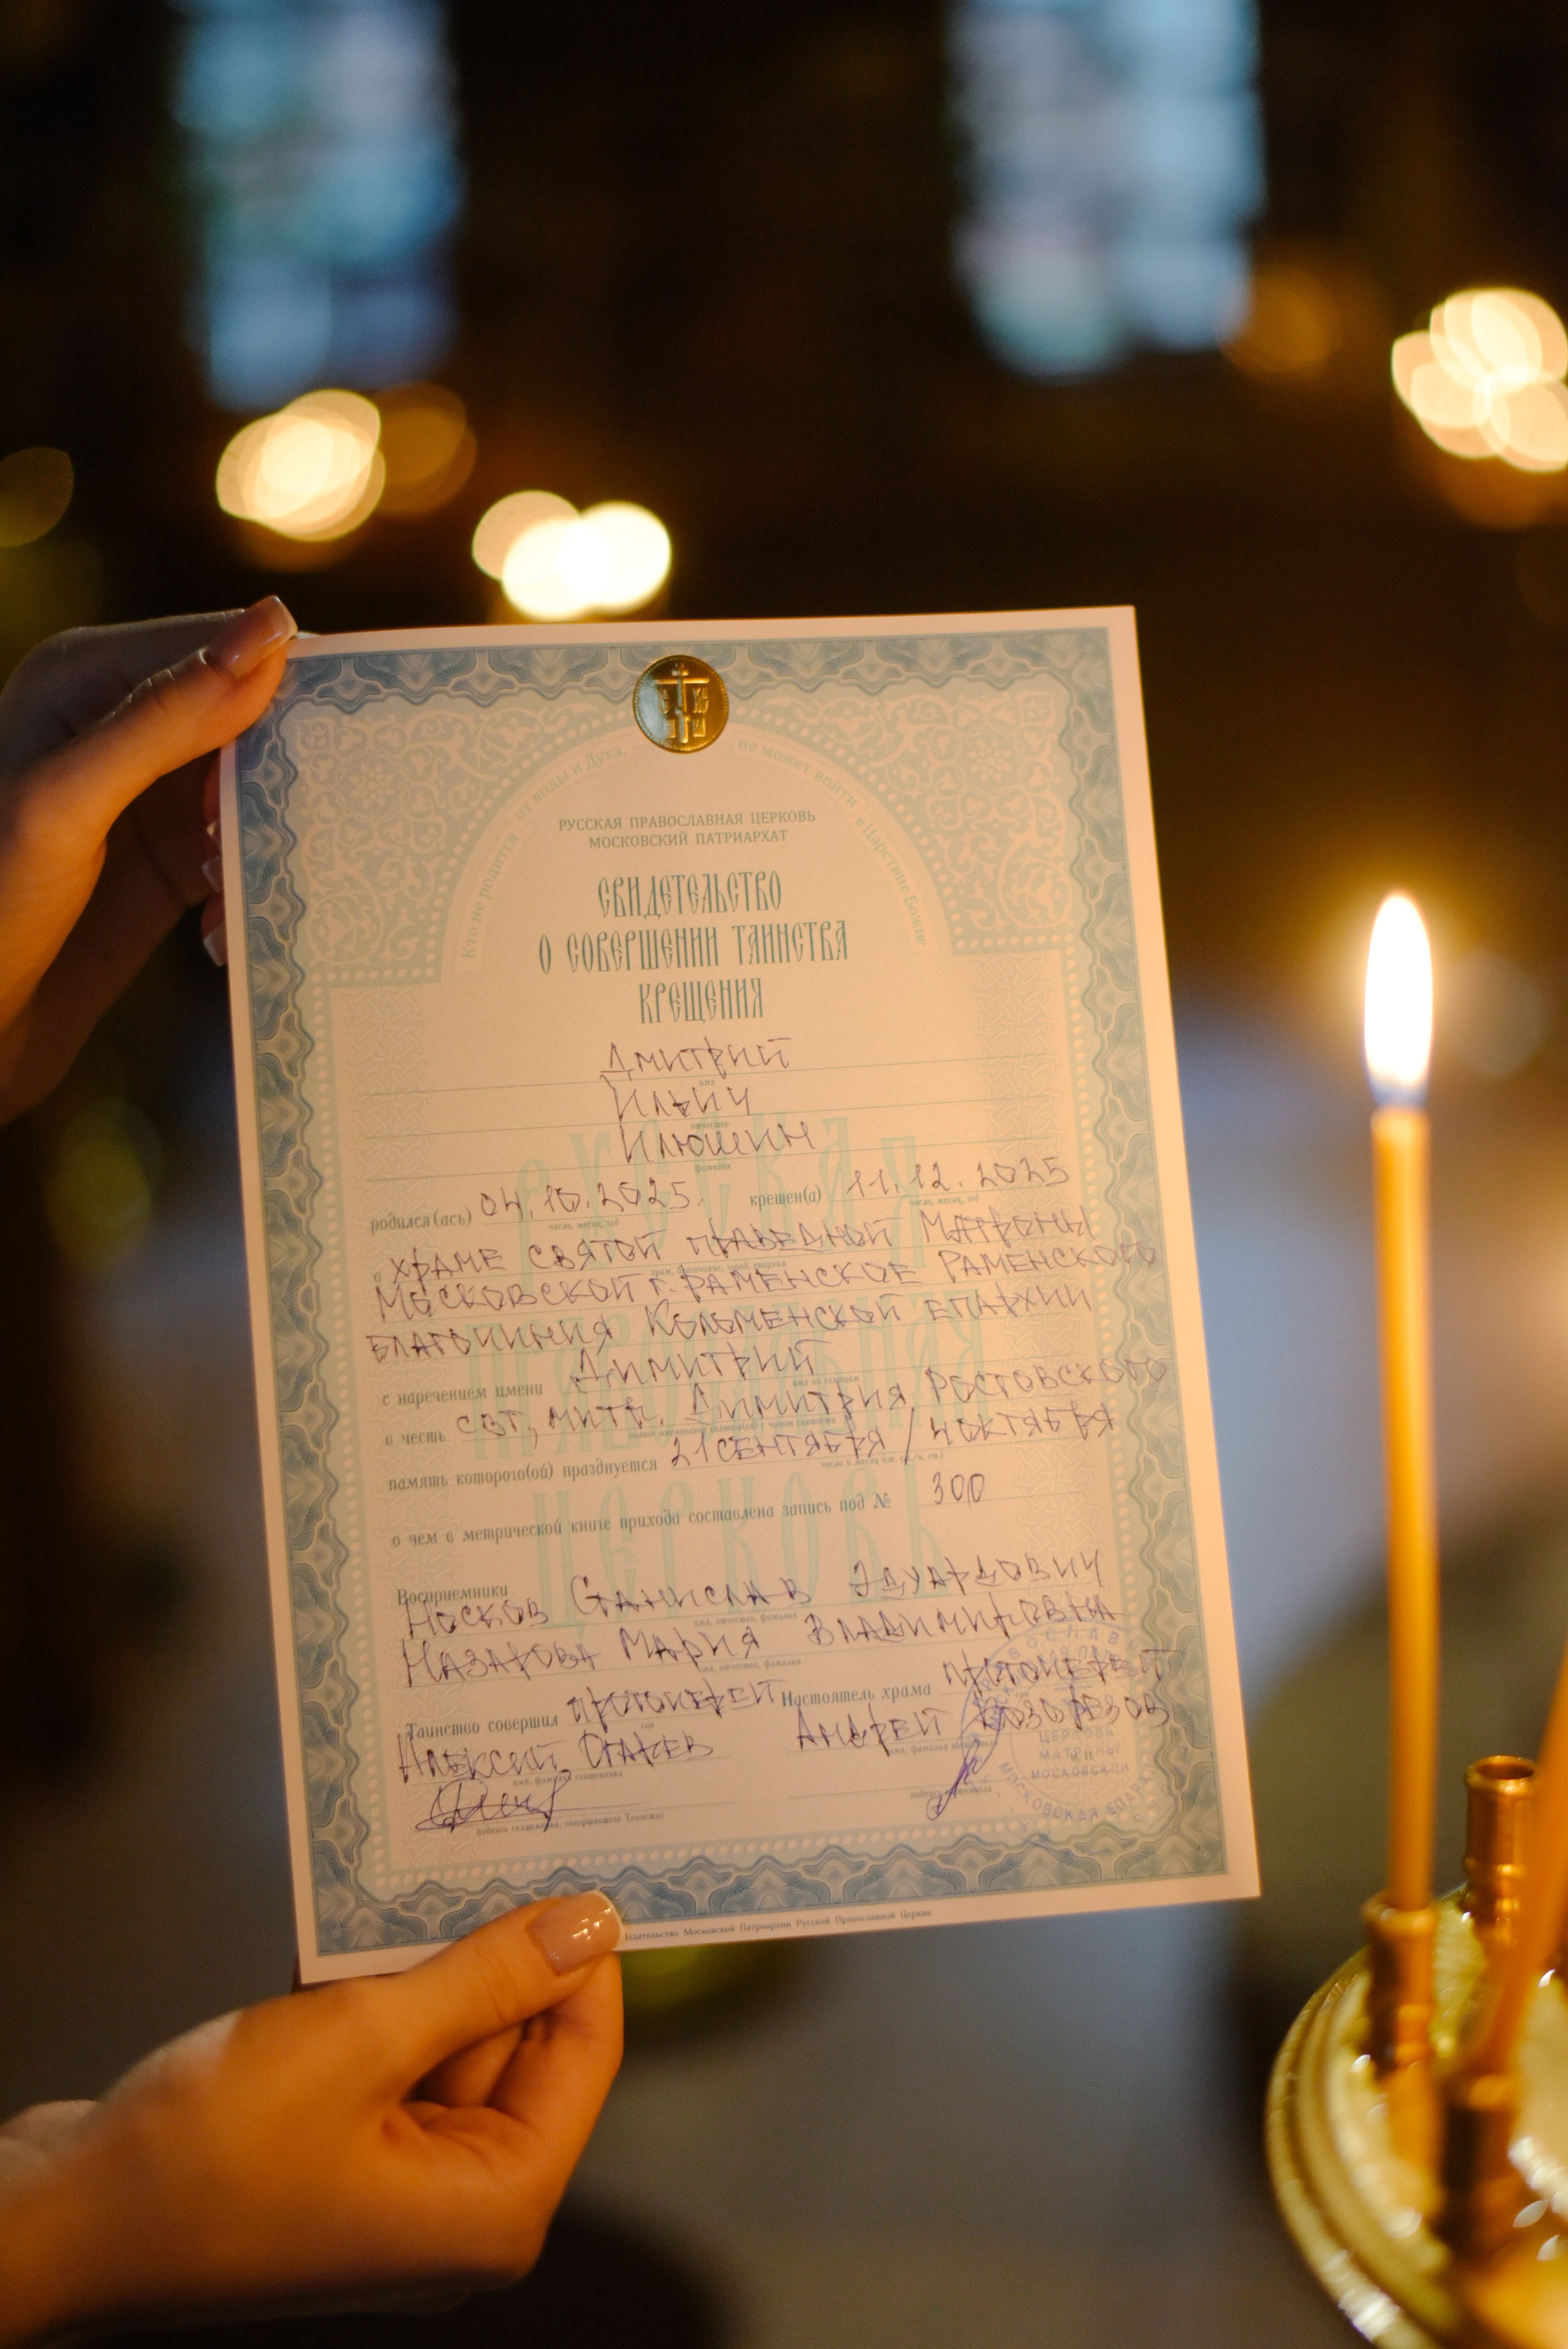 Кто не родится от воды и Духа, не может войти в Царствие Божие
РУССКАЯ ПРАВОСЛАВНАЯ ЦЕРКОВЬ
МОСКОВСКИЙ ПАТРИАРХАТ
СВИДЕТЕЛЬСТВО
О СОВЕРШЕНИИ ТАИНСТВА
КРЕЩЕНИЯ
Дмитрий
имя
Ильич
отчество
Илюшин
фамилия
родился(ась) 04.10.2025. крещен(а) 11.12.2025
число, месяц, год число, месяц, год
в храме святой праведной Матроны
храм, город, епархия
Московской г. Раменское Раменского
благочиния Коломенской епархии
с наречением имени Димитрий
имя по святцам
в честь свт, митр. Димитрия, Ростовского
память которого(ой) празднуется 21 сентября / 4 октября
число и месяц
о чем в метрической книге прихода составлена запись под № 300
Восприемники
Носков Станислав Эдуардович
имя, отчество, фамилия
Назарова Мария Владимировна
имя, отчество, фамилия
Таинство совершил протоиерей Настоятель храма протоиерей
сан
Алексей Андрей
имя, фамилия священника имя, фамилия
подпись священника, совершившего Таинство подпись
ЦЕРКОВЬ
МАТРОНЫ
МОСКОВСКОЙ
МОСКОВСКАЯ ЕПАРХИЯ
РУССКАЯ
ПРАВОСЛАВНАЯ
ЦЕРКОВЬ
Издательство Московской Патриархии Русской Православной Церкви